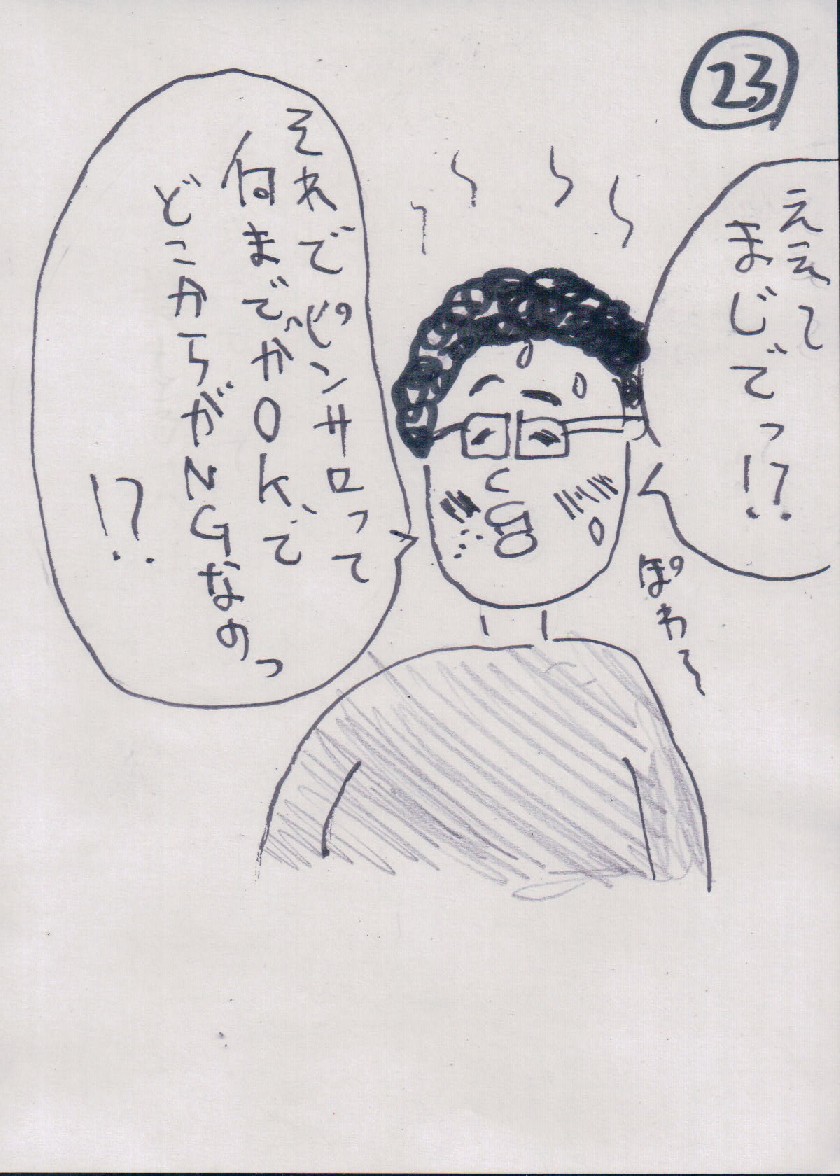 23
ええって
まじでっ!?
それでピンサロって
何までがOKで、
どこからがNGなのっ
!?
ぽわ〜